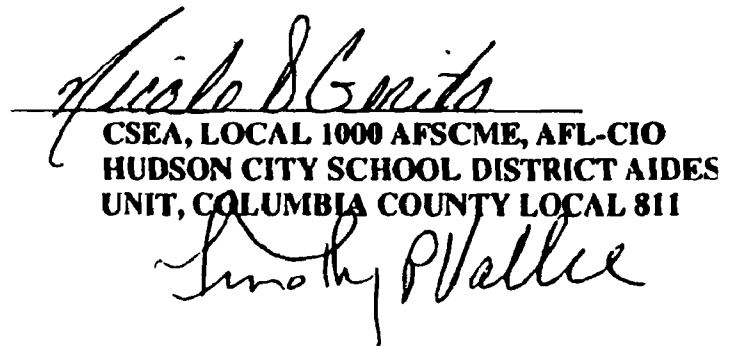 Nicole D Gerito
CSEA, LOCAL 1000 AFSCME, AFL-CIO
HUDSON CITY SCHOOL DISTRICT AIDES
UNIT, COLUMBIA COUNTY LOCAL 811
Timothy P Vallee